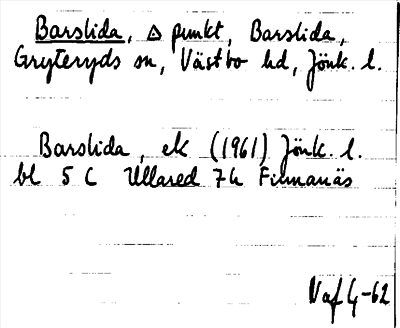 Barslida, △ punkt, Barslida,
Gryteryds sn, Västbo hd, Jönk. l.
Barslida, ek (1961) Jönk. l.
bl 5 C Ullared 7h Finnanäs
Vaf 4-62